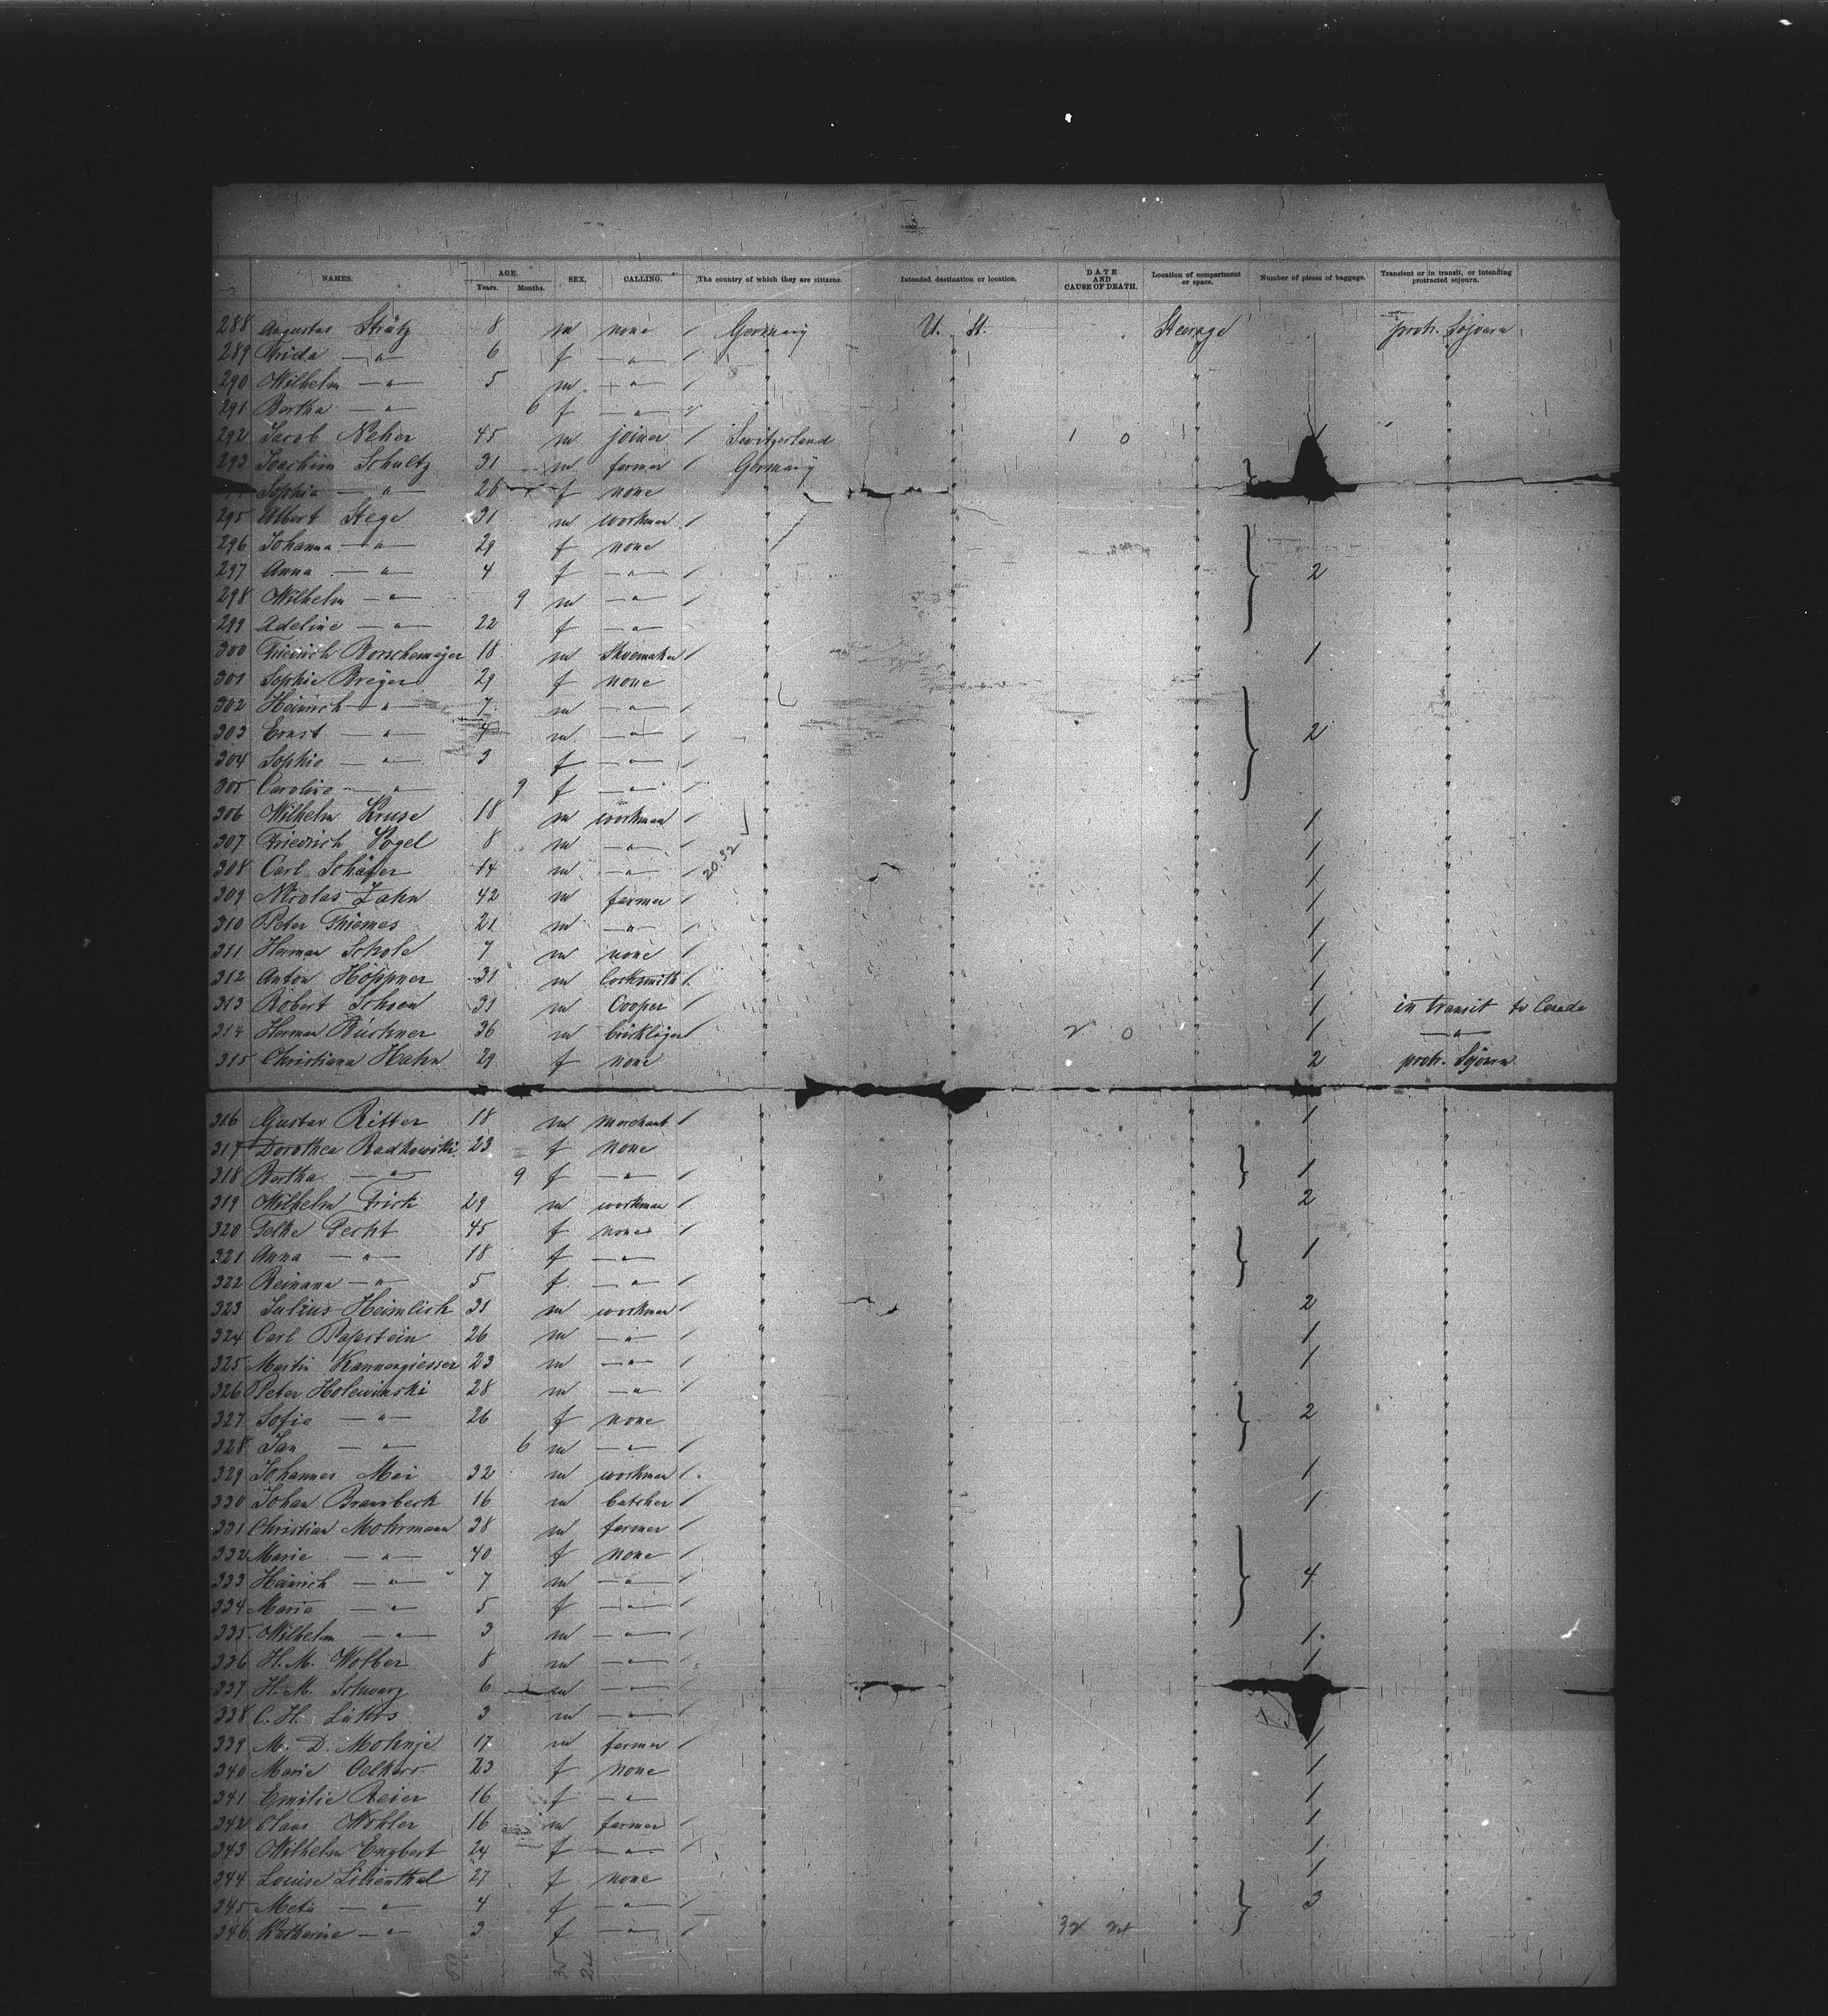 NAMES. AGE. Years. Months. SEX. CALLING. The country of which they are citizens. Intended destination or location. DATE AND CAUSE OF DEATH. Location of compartment or space. Number of pieces of baggage. Transient or in transit, or intending protracted sojourn.
288 Augustus Strätz 8 m none / Germany U. St. Steerage protr. Sojourn
289 Frida —"— 6 f —"— / " " " "
290 Wilhelm —"— 5 m —"— / " " " "
291 Bertha —"— 6 f —"— " " " "
292 Jacob Neher 45 m joiner / Switzerland " 1 0 " / "
293 Joachim Schultz 31 m farmer / Germany " " "
Sophia —"— 26 f none " " " "
295 Albert Stege 31 m workman / " " " "
296 Johanna —"— 29 f none " " " "
297 Anna —"— 4 f —"— / " " " 2 "
298 Wilhelm —"— 9 m —"— / " " " "
299 Adeline —"— 22 f —"— " " " "
300 Friedrich Borschemeyer 18 m Shoemaker / " " " 1 "
301 Sophie Breyer 29 f none " " " "
302 Heinrich —"— 7 m —"— / " " " "
303 Ernst —"— 4 m —"— / " " " 2 "
304 Sophie —"— 3 f —"— / " " " "
305 Caroline —"— 9 f —"— / " " " "
306 Wilhelm Kruse 18 m workman / " " " 1 "
307 Friedrich Vogel 8 m —"— / " " " 1 "
308 Carl Schäfer 14 m —"— / 20.32 " " " 1 "
309 Nicolas Zahn 42 m farmer / " " " 1 "
310 Peter Thiemes 21 m —"— / " " " 1 "
311 Herman Schole 7 m none / " " " 1 "
312 Anton Höppner 31 m locksmith / " " " 1 "
313 Robert Schoen 31 m Cooper / " " " 1 in transit to Canada
314 Herman Büchner 36 m bricklayer / " " 2 0 " 1 —"—
315 Christiana Hahn 29 f none " " " 2 protr. Sojourn
316 Gustav Ritter 18 m merchant / " " " 1 "
317 Dorothea Radkowski 23 f none " " " "
318 Bertha —"— 9 f —"— / " " " 1 "
319 Wilhelm Frick 29 m workman / " " " 2 "
320 Pecht 45 f none / " " " "
321 Anna —"— 18 f —"— " " " 1 "
322 —"— 5 f —"— / " " " "
323 Julius Heimlich 31 m workman / " " " 2 "
324 Carl Papstein 26 m —"— / " " " 1 "
325 Martin Kannengiesser 23 m —"— / " " " 1 "
326 Peter Holewinski 28 m —"— / " " " "
327 Sofie —"— 26 f none " " " 2 "
328 Jan —"— 6 m —"— / " " " "
329 Johannes Mai 32 m workman / " " " 1 "
330 Johan Bransbeck 16 m butcher / " " " 1 "
331 Christian Mohrmann 38 m farmer / " " " "
332 Marie —"— 40 f none / " " " "
333 Heinrich —"— 7 m —"— / " " " 4 "
334 Marie —"— 5 f —"— / " " " "
335 Wilhelm —"— 3 m —"— / " " " 1 "
336 H. M. Wolber 8 m —"— / " " " 1 "
337 H. M. Schwarz 6 m —"— / " " " "
338 C. H. Lührs 3 m —"— / " " " "
339 M. D. Mohnje 17 m farmer / " " " 1 "
340 Marie Oelkers 23 f none " " " 1 "
341 Emilie Reier 16 f —"— " " " 1 "
342 Claus Wohler 16 m farmer / " " " 1 "
343 Wilhelm Engbert 24 f —"— / " " " 1 "
344 Louise Lilienthal 27 f none " " " 1 "
345 Meta —"— 4 f —"— / " " " 3 "
346 Katharine —"— 3 f —"— / " " 32 24 " "
59 35 24